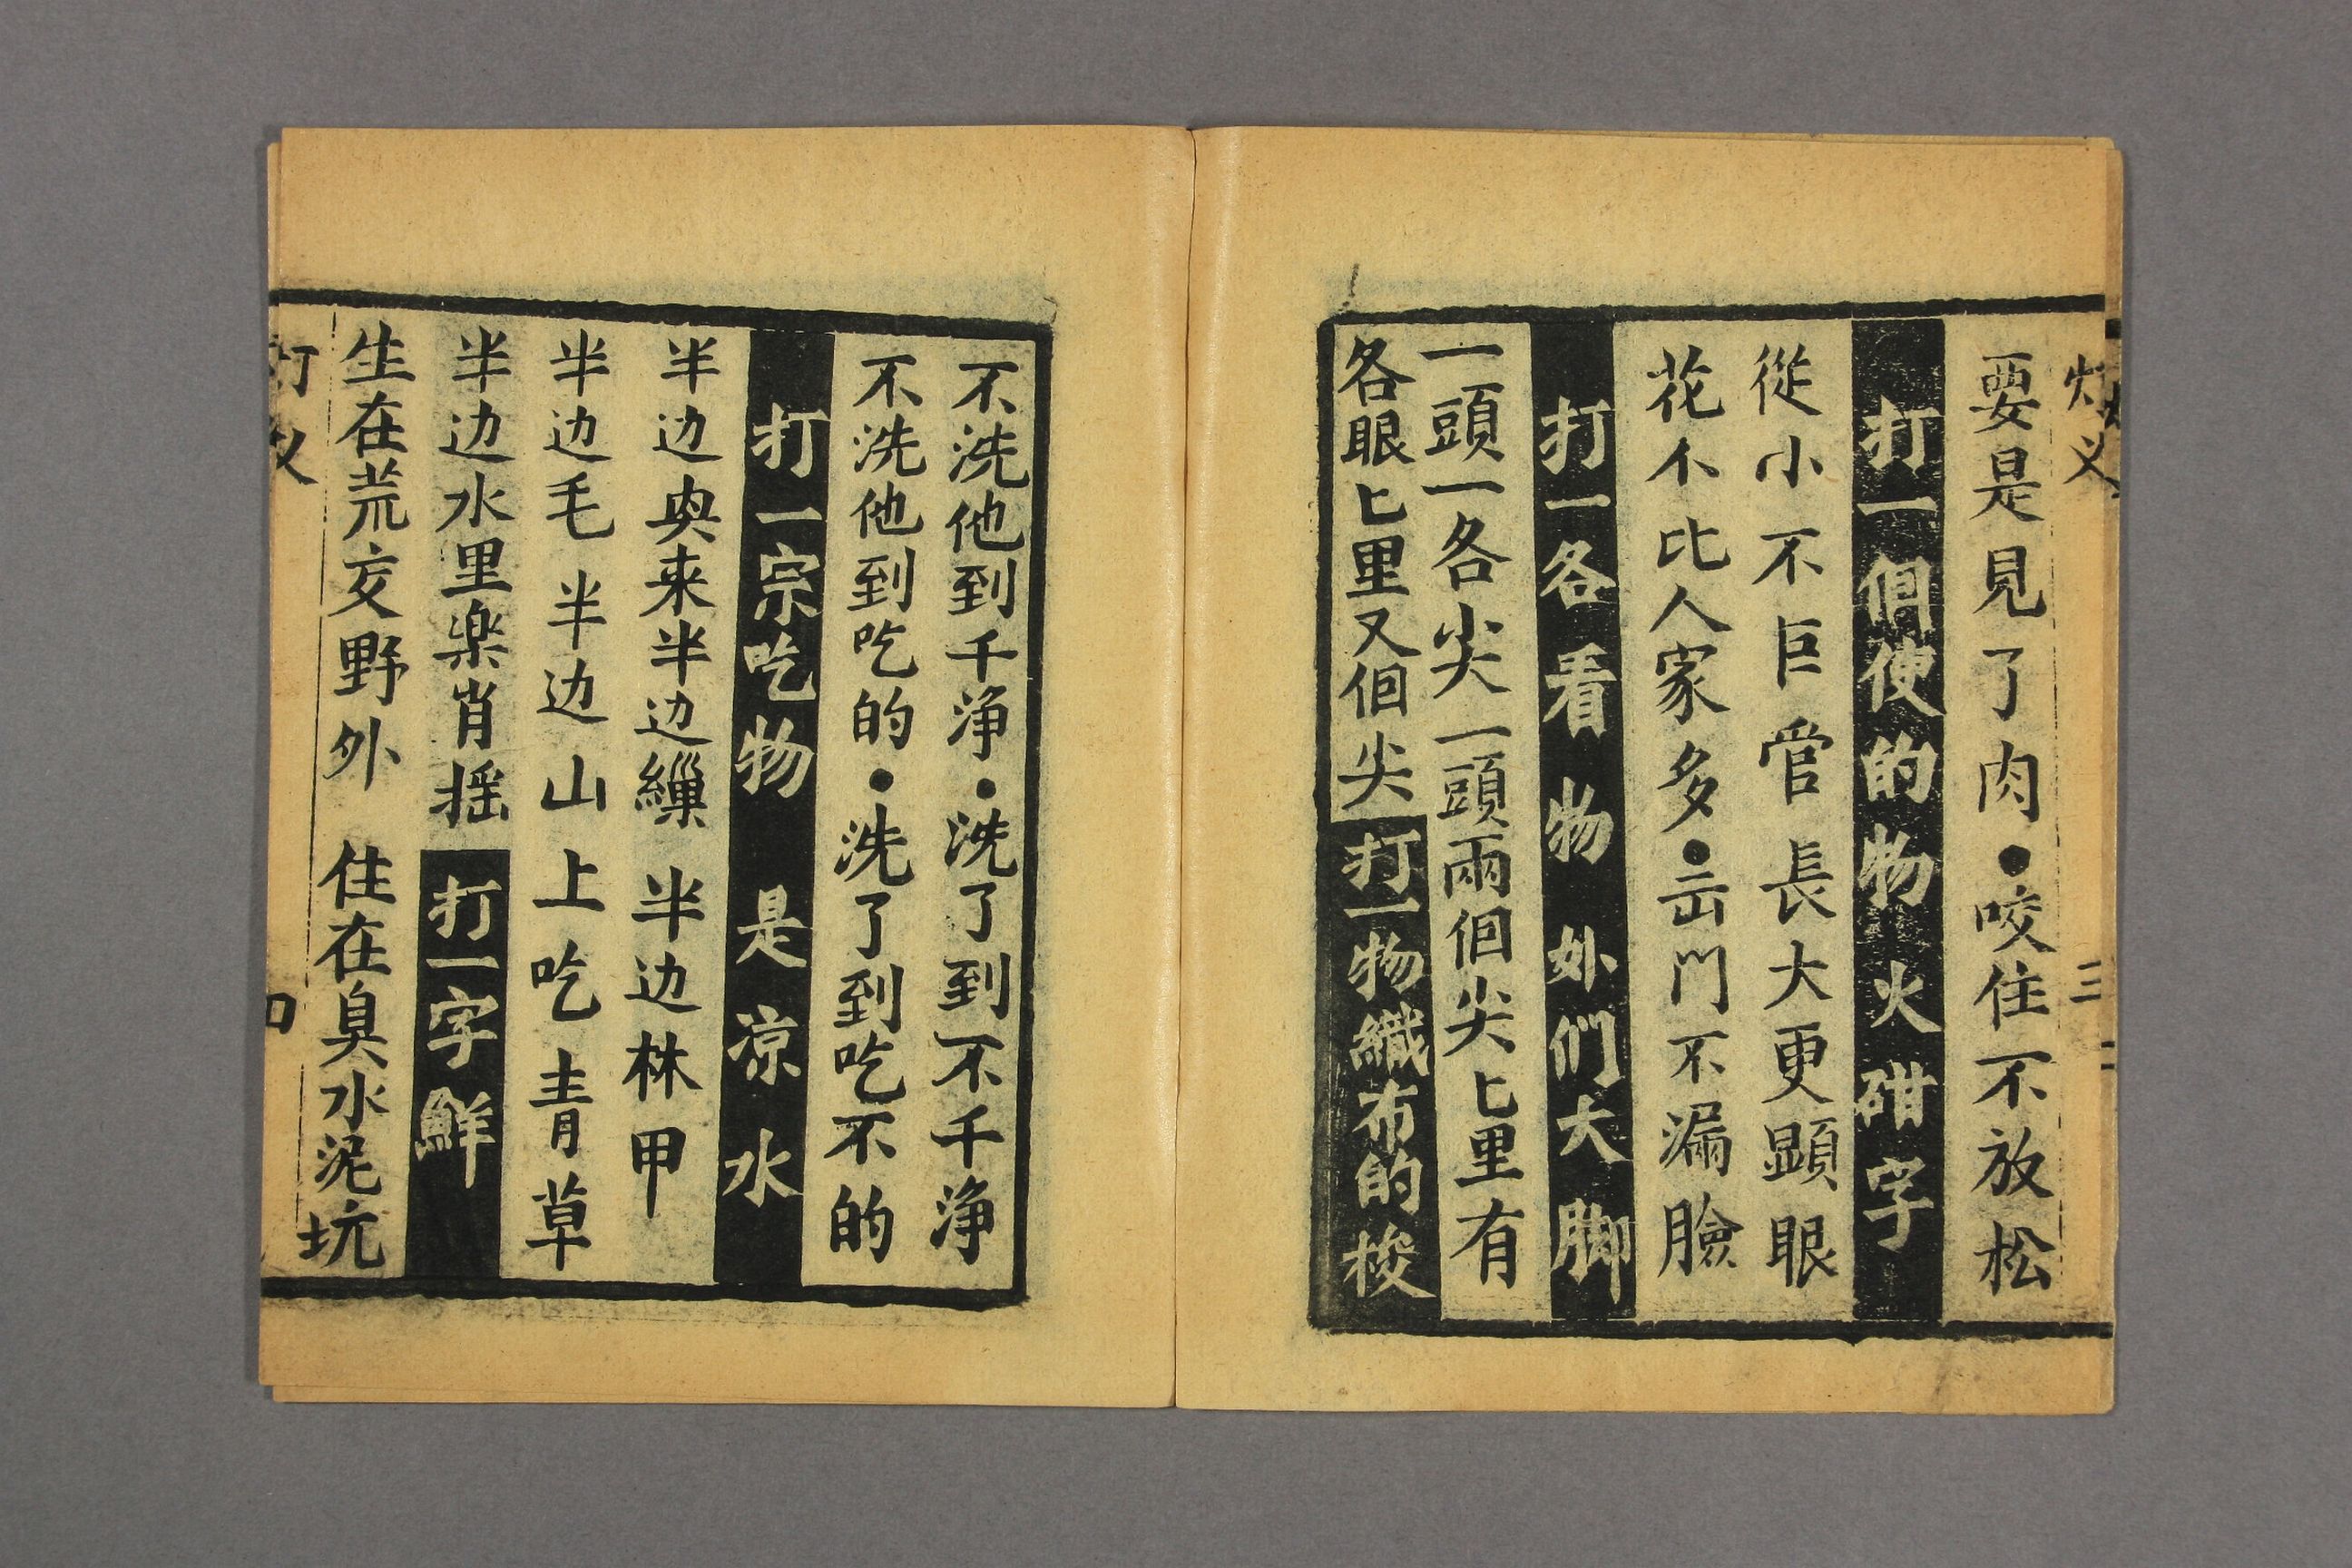 灯义 三
要是見了肉●咬住不放松
打一個使的物火鉗字
從小不巨官長大更顕眼
花不比人家多●出門不漏臉
打一各看物 外們大脚
一頭一各尖一頭兩佪尖匕里有
各眼匕里又佪尖打一物織布的梭
不洗他到千浄●洗了到不千浄
不洗他到吃的●洗了到吃不的
打一宗吃物 是凉水
半边來半边 半边林甲
半边毛半边山上吃青草
半边水里楽肖揺 打一字鮮
生在荒交野外 住在臭水泥坑
灯义